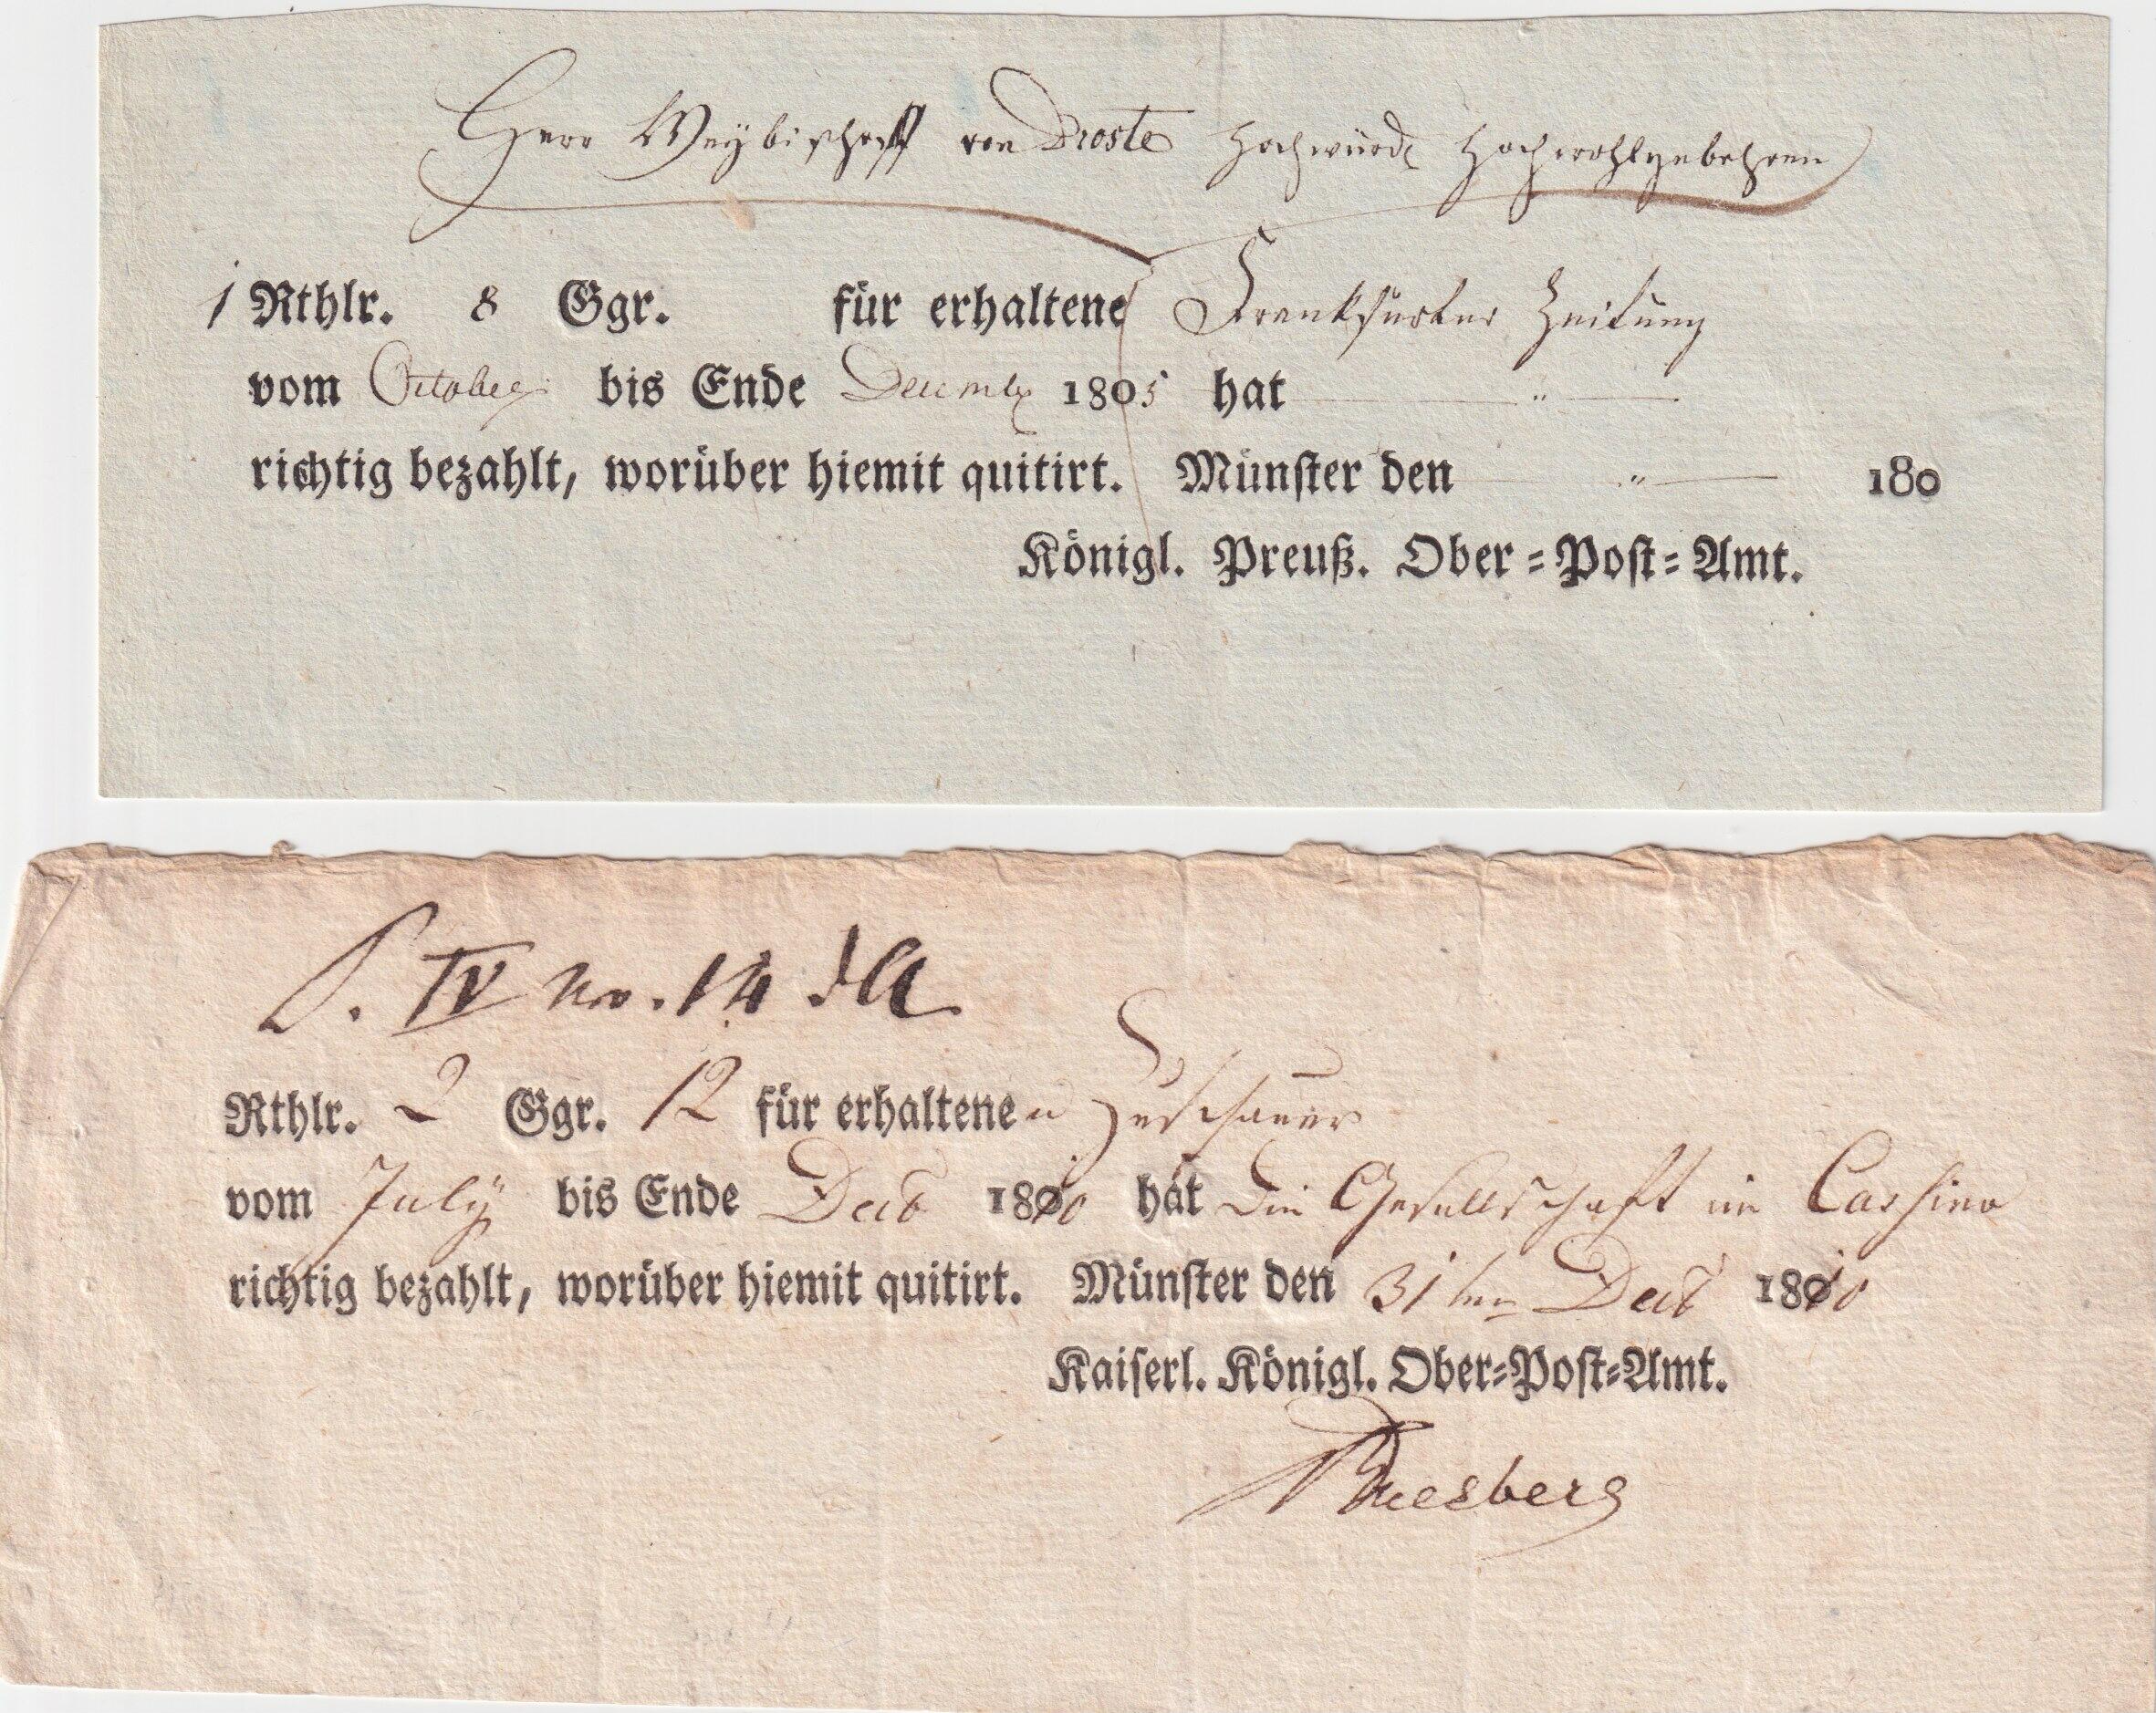 Herr Weybischoff von Droste Hochwürd Hochwohlgebohren
1 Rthlr. 8 Ggr. für erhaltene Frankfurter Zeitung
vom October bis Ende Decembr 1805 hat — " —
richtig bezahlt, worüber hiemit quitirt. Münster den — " — 180
Königl. Preuß. Ober-Post-Amt.
P. IV no. 14
Rthlr. 2 Ggr. 12 für erhaltenen Zuschauer
vom July bis Ende Decb 1810 hat die Gesellschaft im Cassino
richtig bezahlt, worüber hiemit quitirt. Münster den 31ten Decb 1810
Kaiserl. Königl. Ober-Post-Amt.
Duesberg